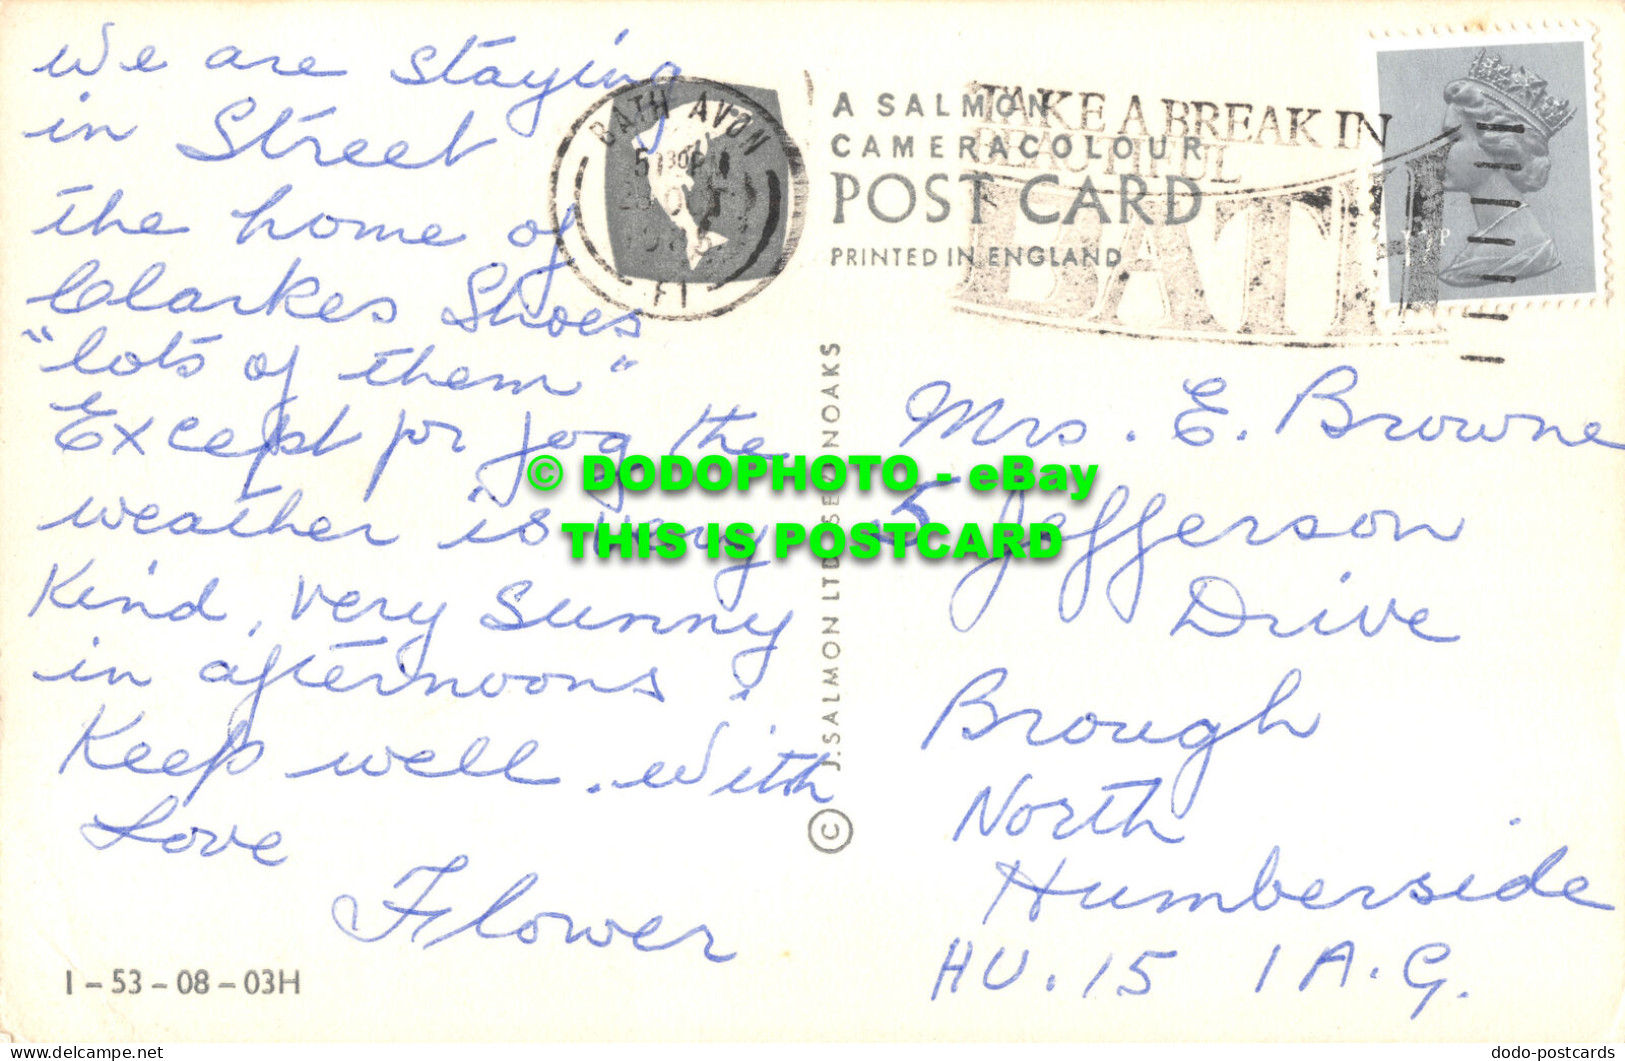 We are staying
in Street
the home of
Clarkes Shoes
"lots of them"
Except for fog the
weather is very
kind, very sunny
in afternoons.
Keep well. With
Love
Flower
I - 53 - 08 - 03H
BATH AVON
F1
A SALMON
CAMERACOLOUR
POST CARD
PRINTED IN ENGLAND
TAKE A BREAK IN
BEAUTIFUL
BATH
© J. SALMON LTD SEVENOAKS
Mrs. E. Browne
5 Jefferson
Drive
Brough
North
Humberside
HU.15 1A.G.
© DODOPHOTO - eBay
THIS IS POSTCARD
delcampe.net
dodo-postcards